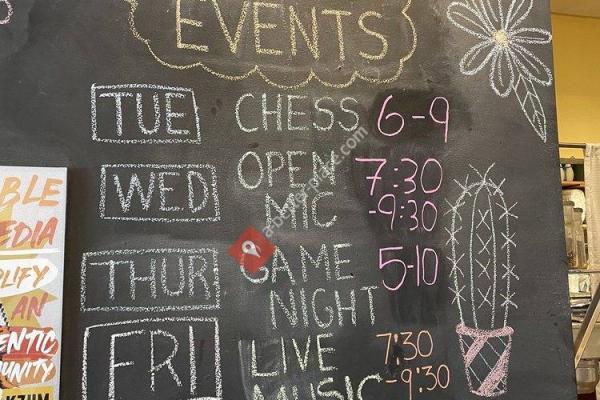 EVENTS
TUE CHESS 6-9
WED OPEN MIC 7:30
-9:30
THUR GAME NIGHT 5-10
FRI LIVE MUSIC 7:30
-9:30
BLE
EDIA
PLIFY
AN
ENTIC
UNITY
KZUM